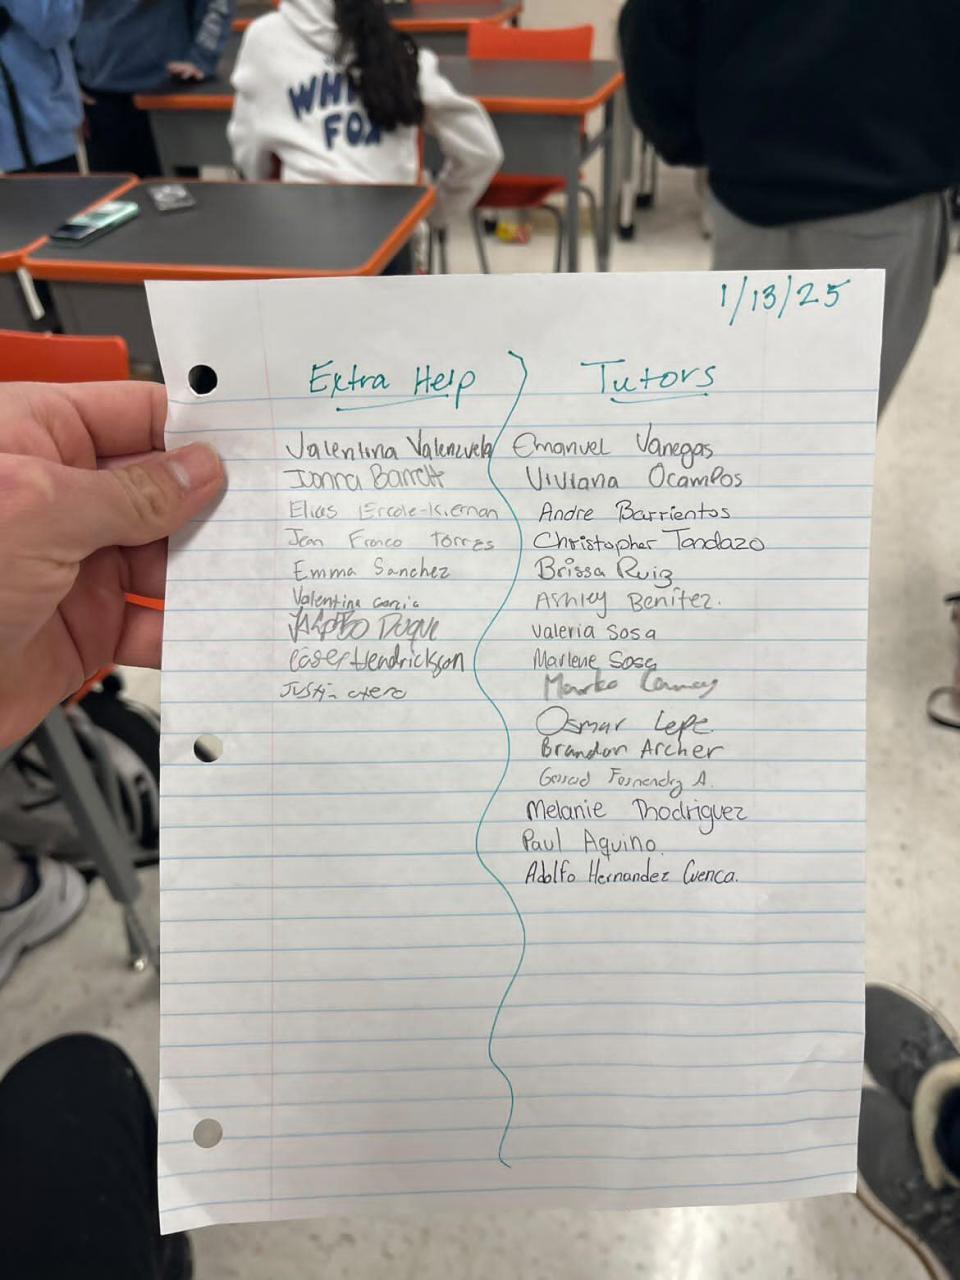 WHI
FOX
1/13/25
Extra Help
Valentina Valenzuela
Barrett
Elias Ercole-Kiernan
Jean Franco Torres
Emma Sanchez
Valentina Garcia
Duque
Casey Hendrickson
Justin otero
Tutors
Emanuel Vanegas
Viviana Ocampos
Andre Barrientos
Christopher Tandazo
Brissa Ruiz
Ashley Benitez.
Valeria Sosa
Marlene Sosa
Osmar Lepe.
Brandon Archer
A.
Melanie Rhodriguez
Paul Aquino
Adolfo Hernandez Cuenca.